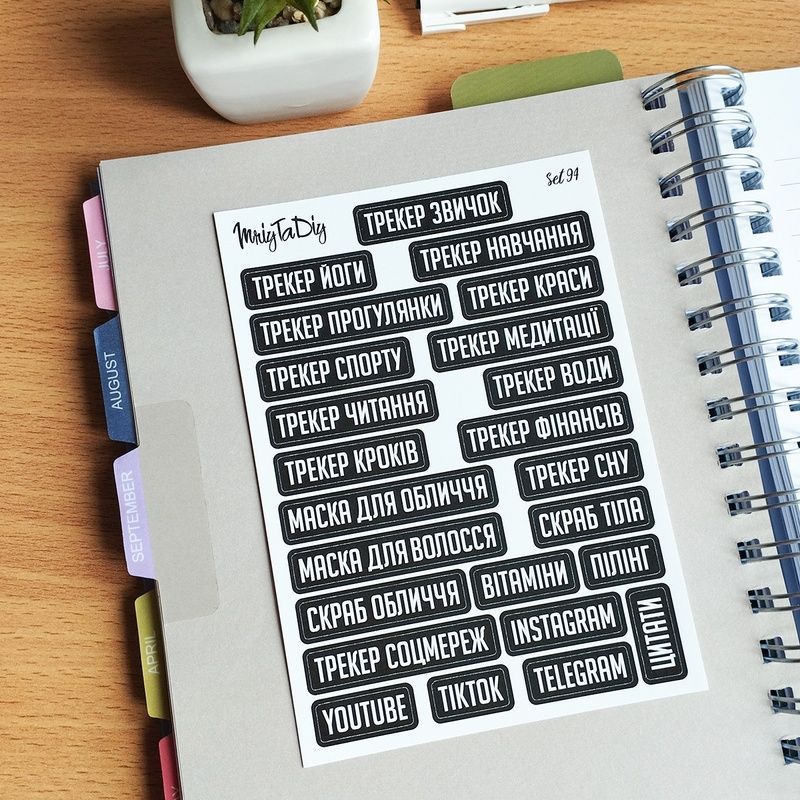 MriyTaDiy
Set 94
ТРЕКЕР ЗВИЧОК
ТРЕКЕР НАВЧАННЯ
ТРЕКЕР ЙОГИ
ТРЕКЕР КРАСИ
ТРЕКЕР ПРОГУЛЯНКИ
ТРЕКЕР МЕДИТАЦІЇ
ТРЕКЕР СПОРТУ
ТРЕКЕР ВОДИ
ТРЕКЕР ЧИТАННЯ
ТРЕКЕР ФІНАНСІВ
ТРЕКЕР КРОКІВ
ТРЕКЕР СНУ
МАСКА ДЛЯ ОБЛИЧЧЯ
СКРАБ ТІЛА
МАСКА ДЛЯ ВОЛОССЯ
ПІЛІНГ
ВІТАМІНИ
СКРАБ ОБЛИЧЧЯ
INSTAGRAM
ЦИТАТИ
ТРЕКЕР СОЦМЕРЕЖ
TELEGRAM
TIKTOK
YOUTUBE
JULY
AUGUST
SEPTEMBER
APRIL